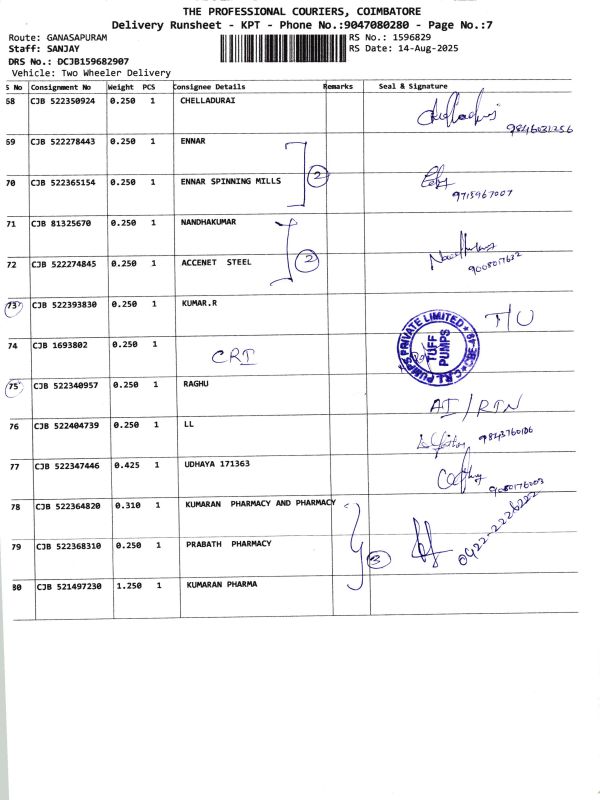 THE PROFESSIONAL COURIERS, COIMBATORE
Delivery Runsheet - KPT - Phone No.:9047080280 - Page No.:7
Route: GANASAPURAM RS No.: 1596829
Staff: SANJAY RS Date: 14-Aug-2025
DRS No.: DCJB159682907
Vehicle: Two Wheeler Delivery
S No Consignment No Weight PCS Consignee Details Remarks Seal & Signature
68 CJB 522350924 0.250 1 CHELLADURAI
9846031256
69 CJB 522278443 0.250 1 ENNAR
2
70 CJB 522365154 0.250 1 ENNAR SPINNING MILLS
9715967007
71 CJB 81325670 0.250 1 NANDHAKUMAR
72 CJB 522274845 0.250 1 ACCENET STEEL 2
9008017632
73 CJB 522393830 0.250 1 KUMAR.R T/U
74 CJB 1693802 0.250 1 CRI
TUFF PUMPS
75 CJB 522340957 0.250 1 RAGHU AI/RTN
76 CJB 522404739 0.250 1 LL 9843760106
77 CJB 522347446 0.425 1 UDHAYA 171363
9080176003
78 CJB 522364820 0.310 1 KUMARAN PHARMACY AND PHARMACY
0422-2226222
79 CJB 522368310 0.250 1 PRABATH PHARMACY 3
80 CJB 521497230 1.250 1 KUMARAN PHARMA